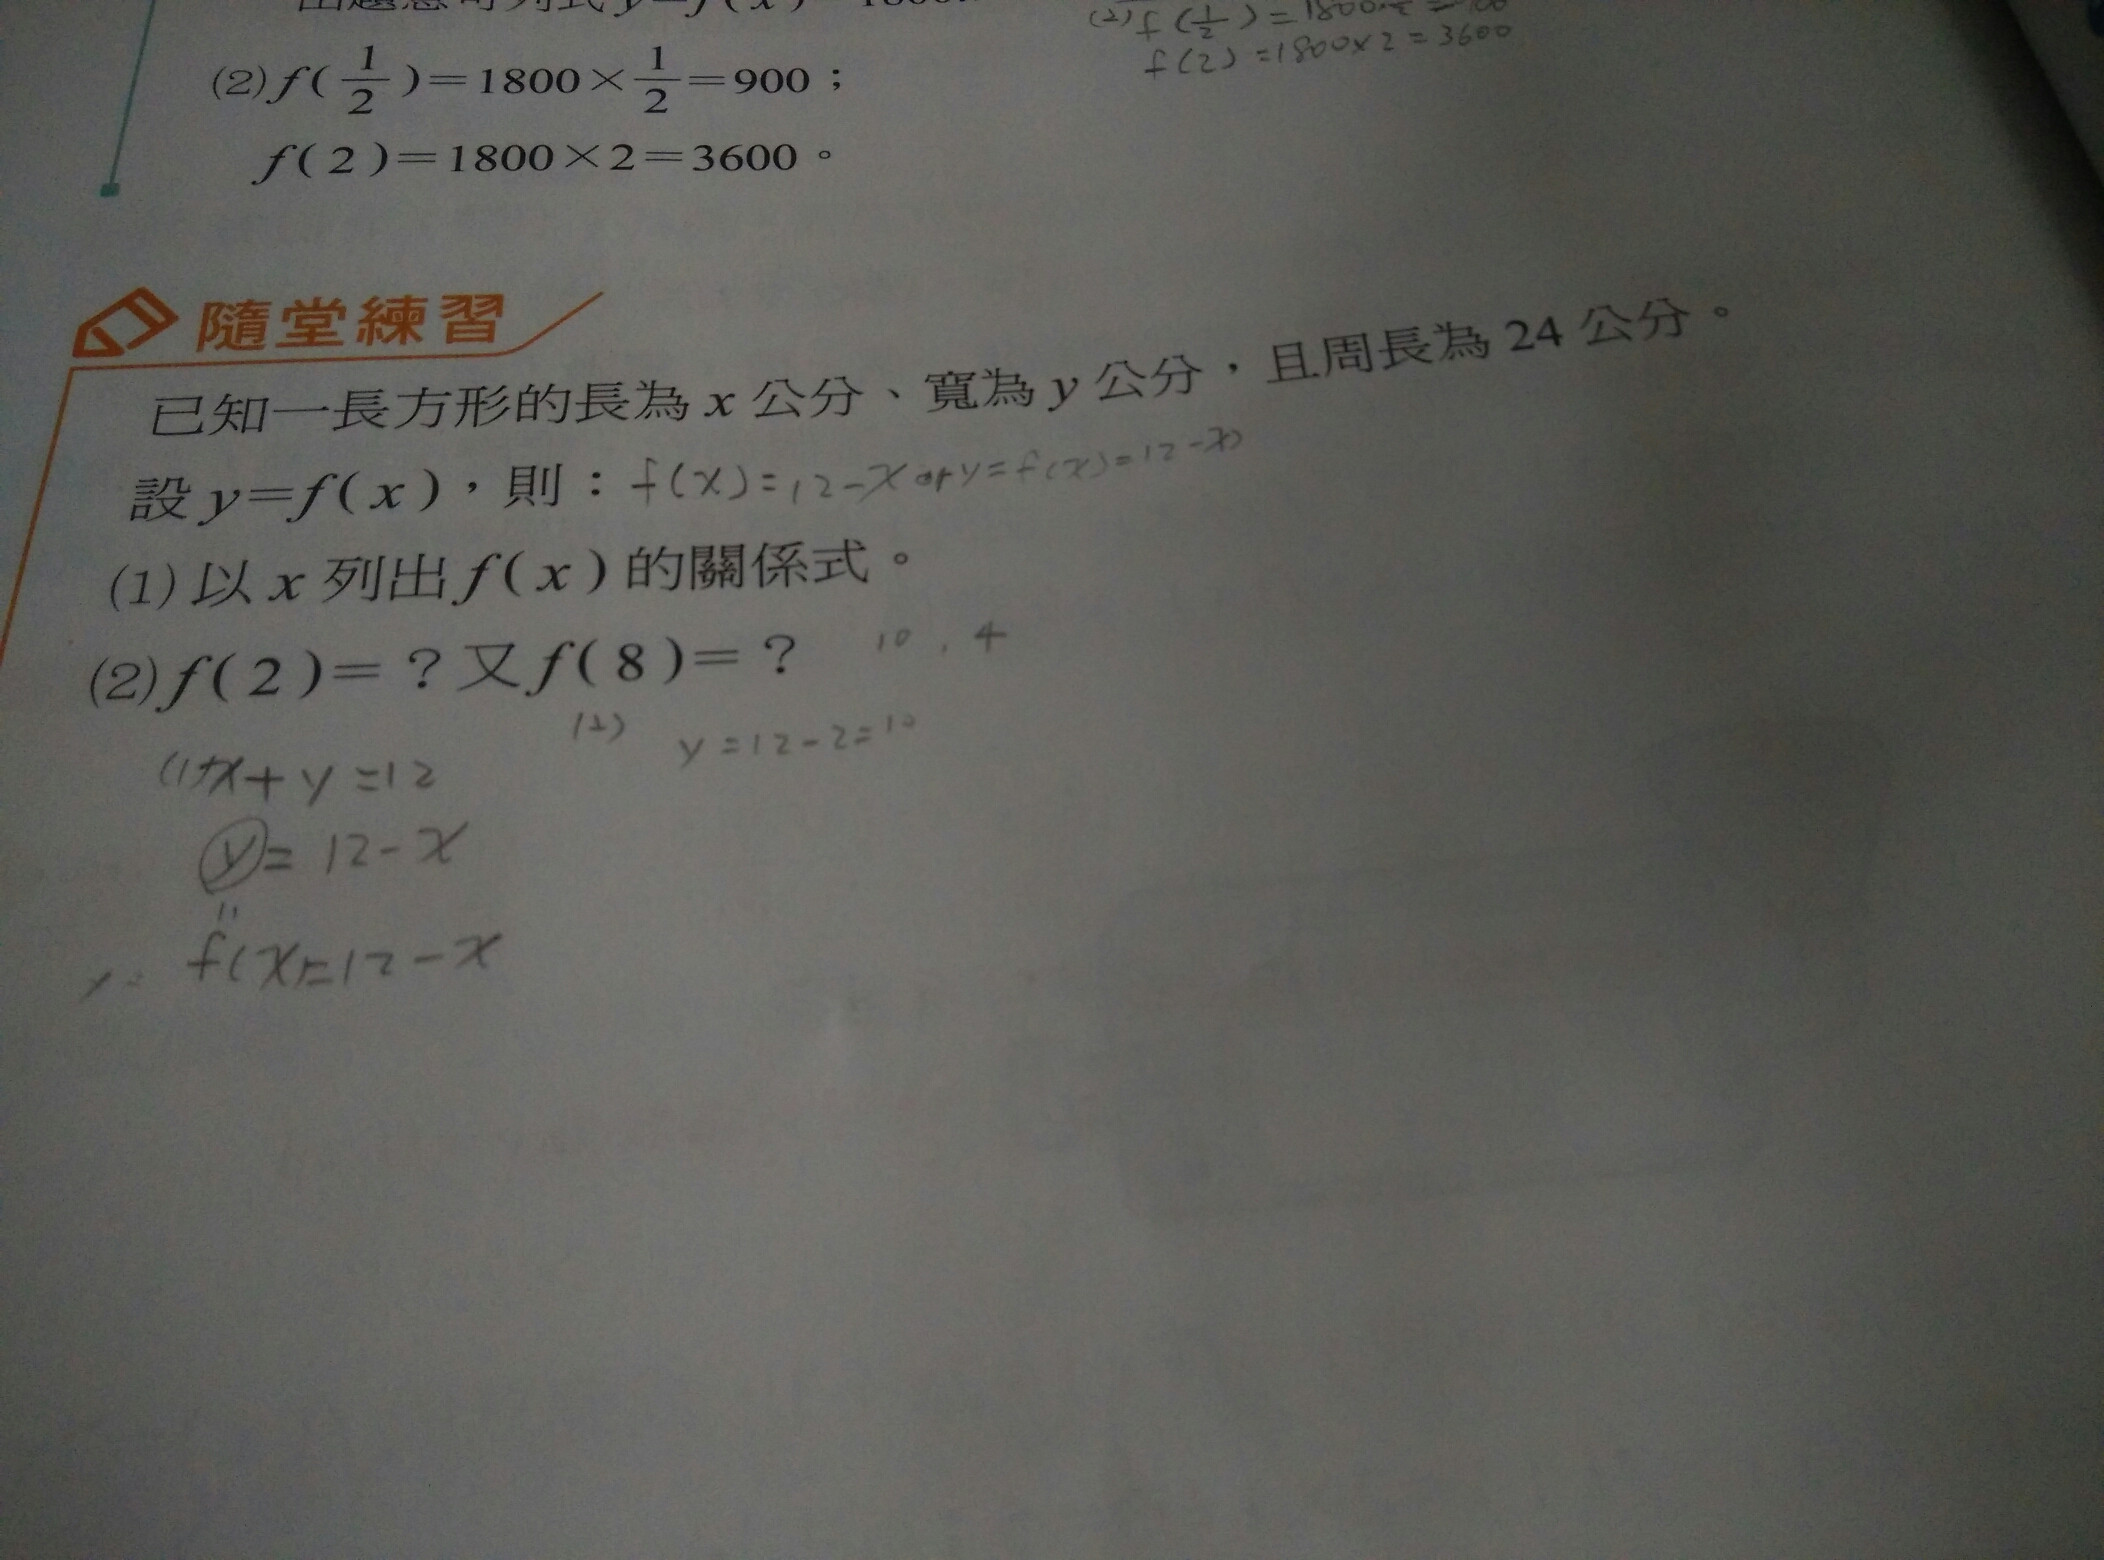 (2) f(1/2)=1800×1/2=900；
f(2)=1800×2=3600。
f(2)=1800×2=3600
隨堂練習
已知一長方形的長為 x 公分、寬為 y 公分，且周長為 24 公分。
設 y=f(x)，則：f(x)=12-x or y=f(x)=12-x
(1) 以 x 列出 f(x) 的關係式。
(2) f(2)=？又 f(8)=？ 10，4
(2) y=12-2=10
(1) x+y=12
y=12-x
f(x)=12-x